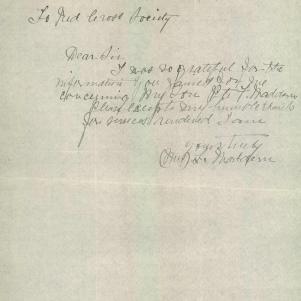 To Red Cross Society
Dear Sir
I was so grateful for the
information you gained for me
concerning my son Pte
Please accept my humble thanks
for services rendered
yours truly
Mrs